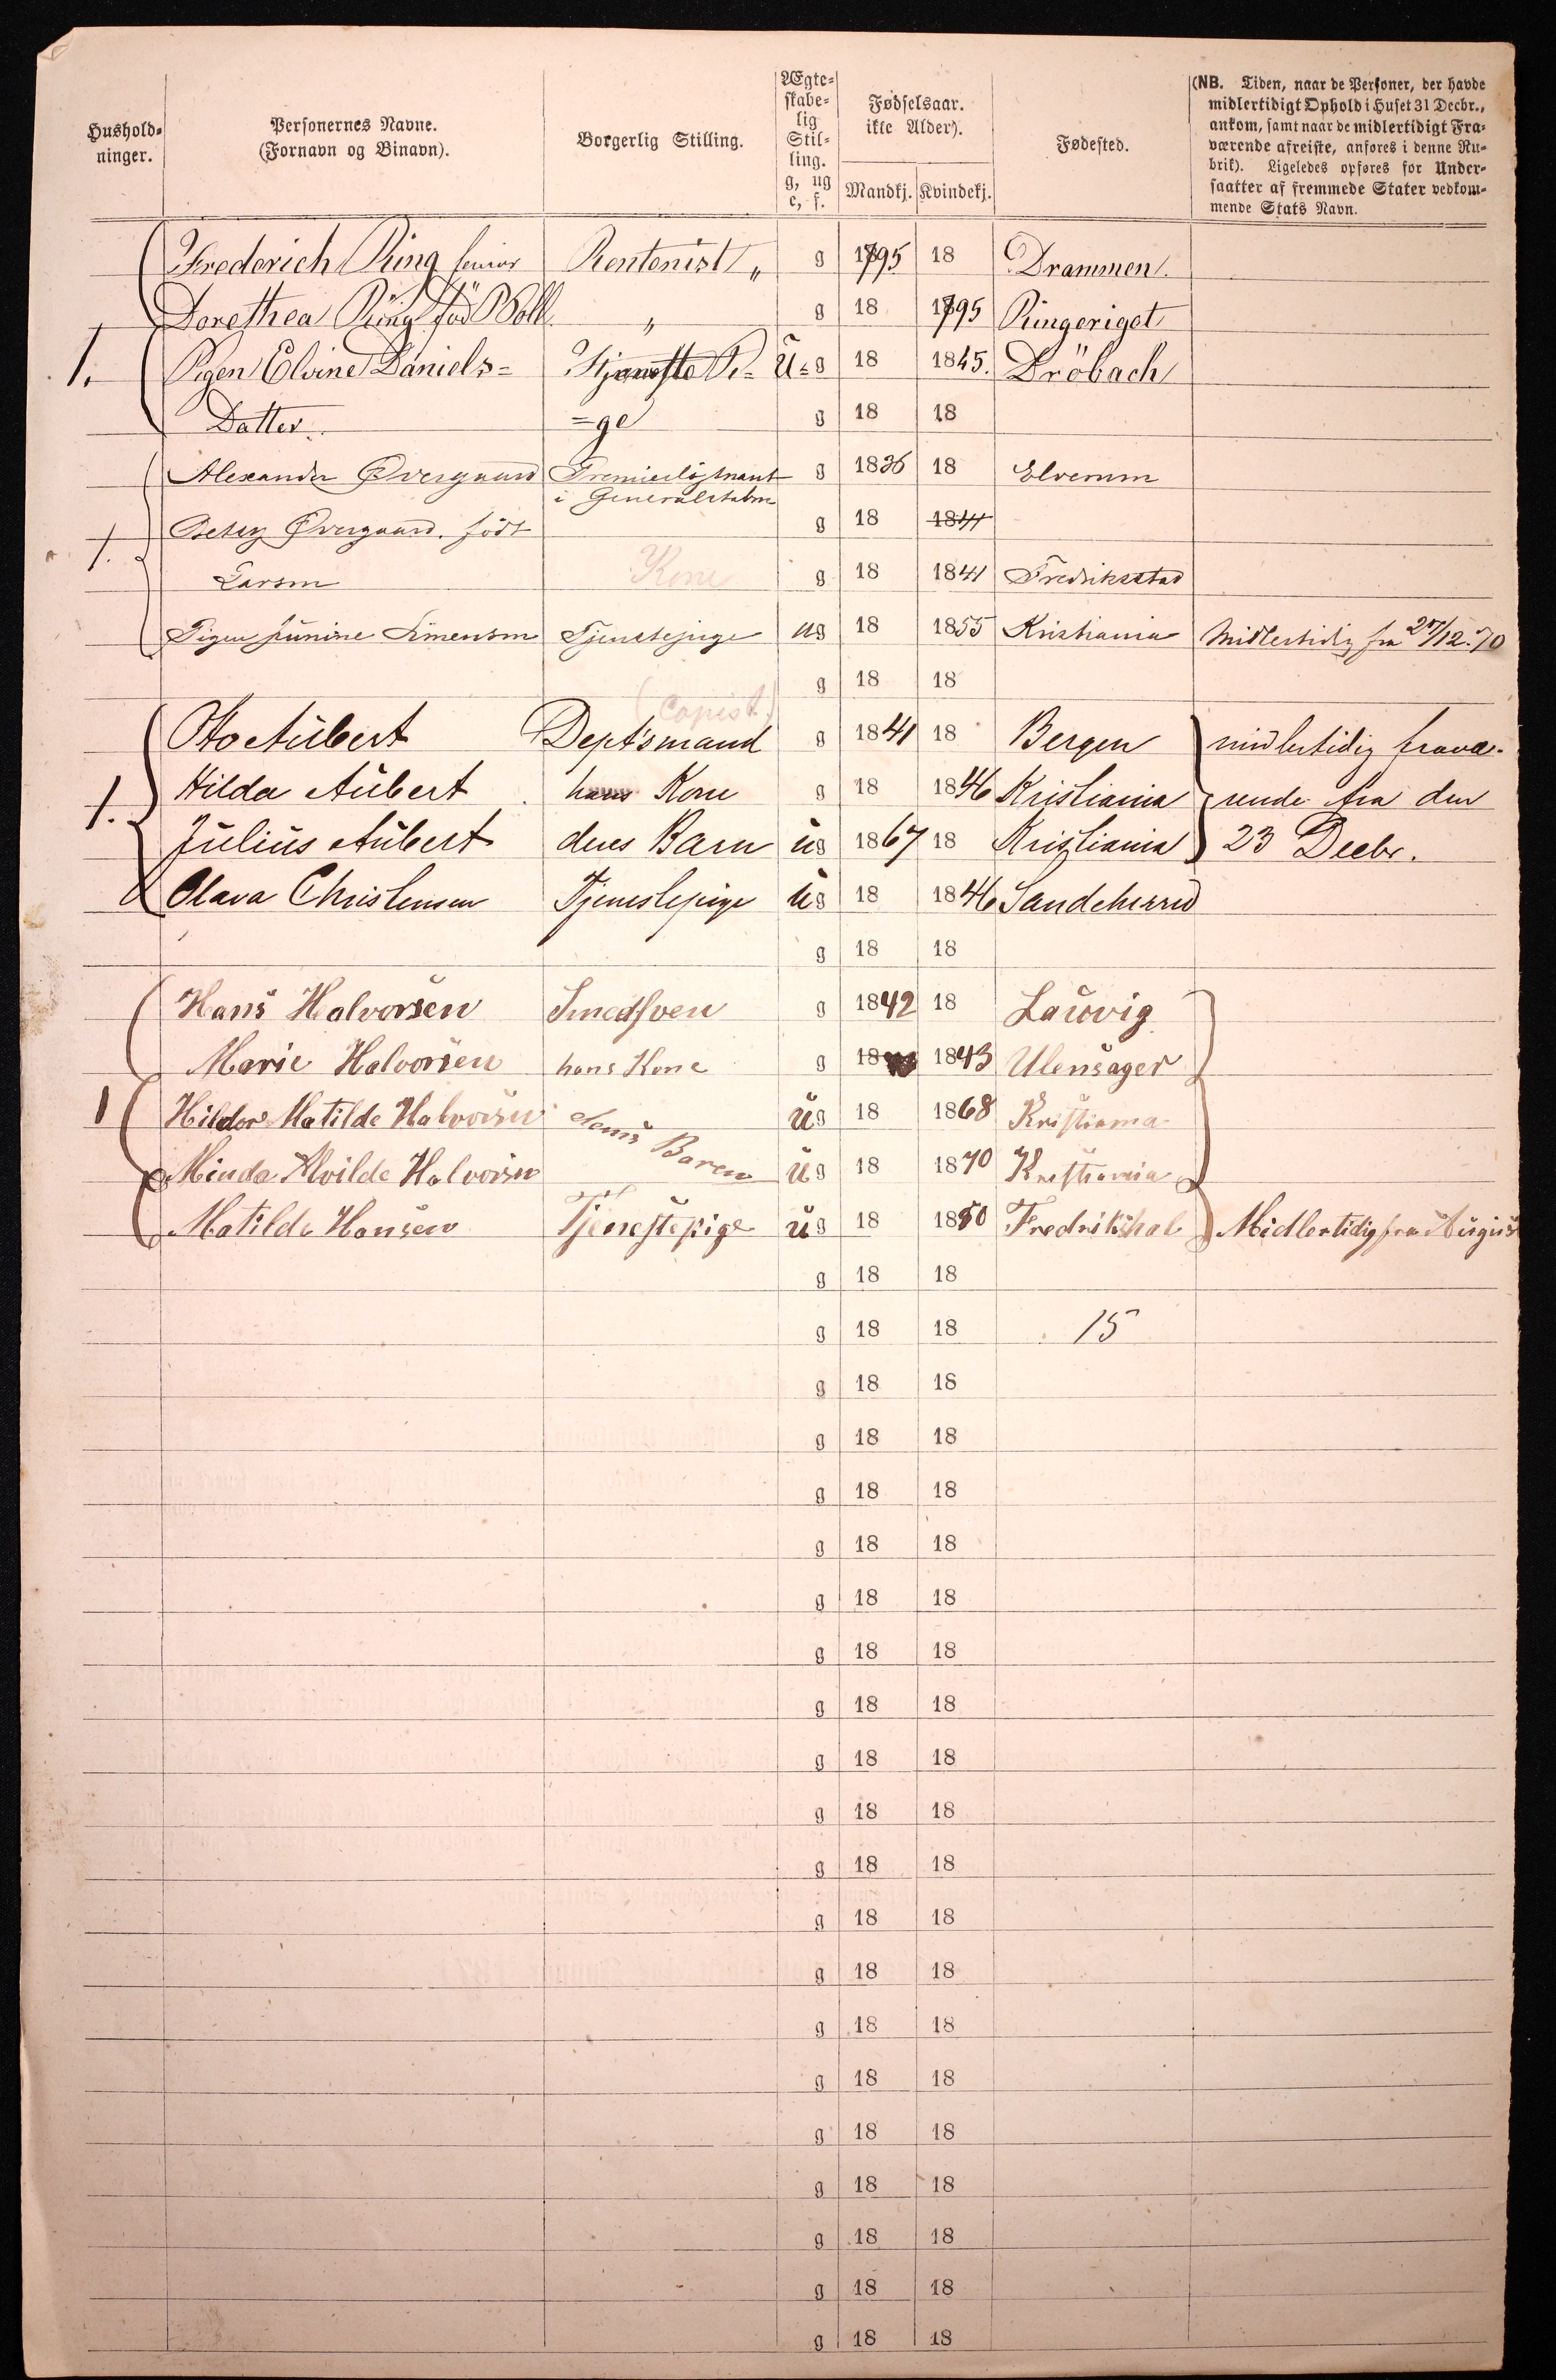 Hushold-
ninger.
Personernes Navne.
(Fornavn og Binavn).
Borgerlig Stilling.
Ægte-
skabe-
lig
Stil-
ling.
g, ug
e, f.
Fødselsaar.
ikke Alder).
Mandkj. Kvindekj.
Fødested.
(NB. Tiden, naar de Personer, der havde
midlertidigt Ophold i Huset 31 Decbr.,
ankom, samt naar de midlertidigt Fra-
værende afreiste, anføres i denne Ru-
brik). Ligeledes opføres for Under-
saatter af fremmede Stater vedkom-
mende Stats Navn.
Frederich Ring senior Rentenist " g 1795 18 Drammen.
Dorethea Ring född " g 18 1795 Ringeriget
1. Pigen Elvine Daniels= Pi= u=g 18 1845. Dröbach
Datter. =ge g 18 18
Alexander Øvergaard Premierløjtnant g 1836 18 Elverum
i Generalstaben
Betsy Øvergaard. født g 18 1841
1. Larsen Kone g 18 1841 Fredriksstad
Pigen Simensen Tjenstepige ug 18 1855 Kristiania Midlertidig fra 12.70
g 18 18
(Copist.)
Otto Aubert Dept'smand g 1841 18 Bergen midlertidig fravæ-
1. Hilda Aubert hans Kone g 18 1846 Kristiania rende fra den
Julius Aubert deres Barn ug 1867 18 Kristiania 23 Decbr.
Olava Christensen Tjenestepige ug 18 1846 Sandeherred
g 18 18
Hans Halvorsen Smedsven g 1842 18 Laurvig
Marie Halvorsen hans Kone g 18 1843 Ulensager
1 Hilda Matilde Halvorsen Deris Baren ug 18 1868 Kristiania
Minda Alvilde Halvorsen ug 18 1870 Kristiania
Matilde Hansen Tjenestepige ug 18 1850 Fredrikshal Midlertidig fra August
g 18 18
g 18 18 15
g 18 18
g 18 18
g 18 18
g 18 18
g 18 18
g 18 18
g 18 18
g 18 18
g 18 18
g 18 18
g 18 18
g 18 18
g 18 18
g 18 18
g 18 18
g 18 18
g 18 18
g 18 18
g 18 18